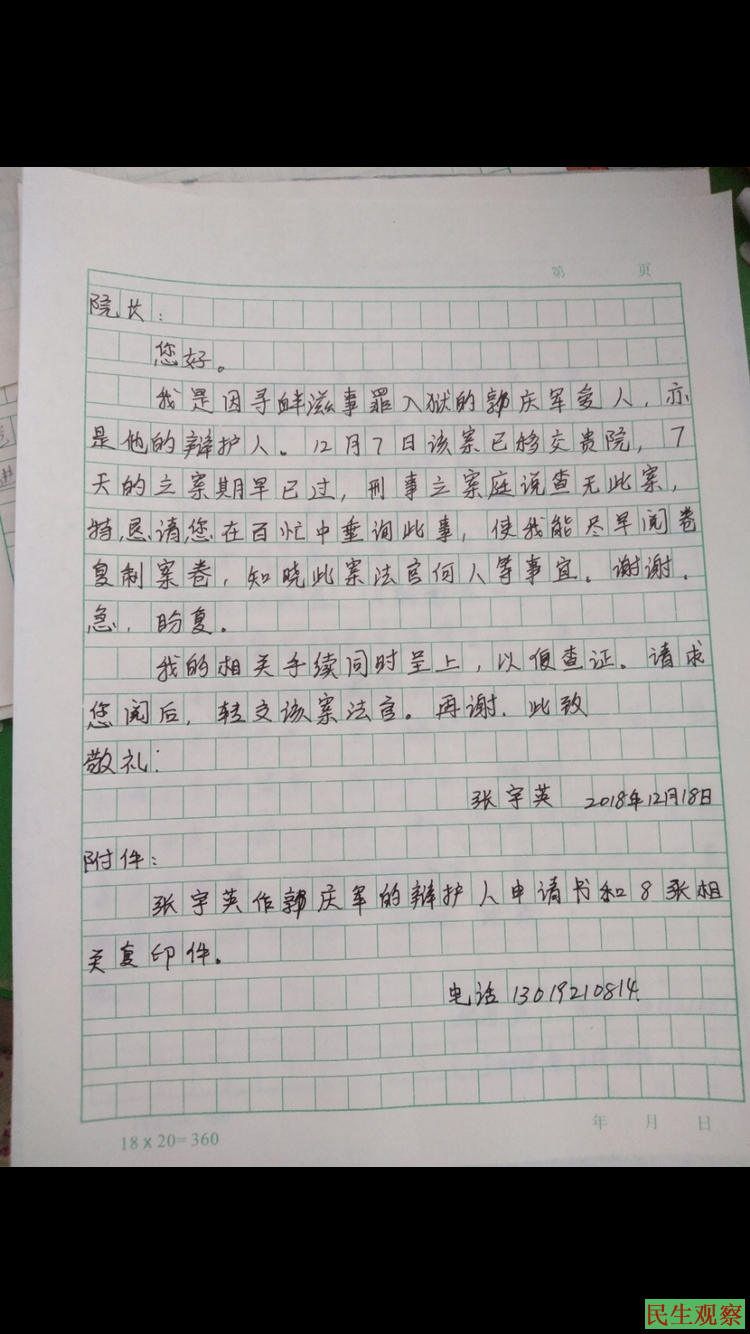 第 页
院长：
您好。
我是因寻衅滋事罪入狱的郭庆军爱人，亦
是他的辩护人。12月7日该案已移交贵院，7
天的立案期早已过，刑事立案庭说查无此案，
特恳请您在百忙中垂询此事，使我能尽早阅卷
复制案卷，知晓此案法官何人等事宜。谢谢。
急，盼复。
我的相关手续同时呈上，以便查证。请求
您阅后，转交该案法官。再谢。此致
敬礼：
张宇英 2018年12月18日
附件：
张宇英作郭庆军的辩护人申请书和8张相
关复印件。
电话13019210814
18×20=360
年 月 日
民生观察